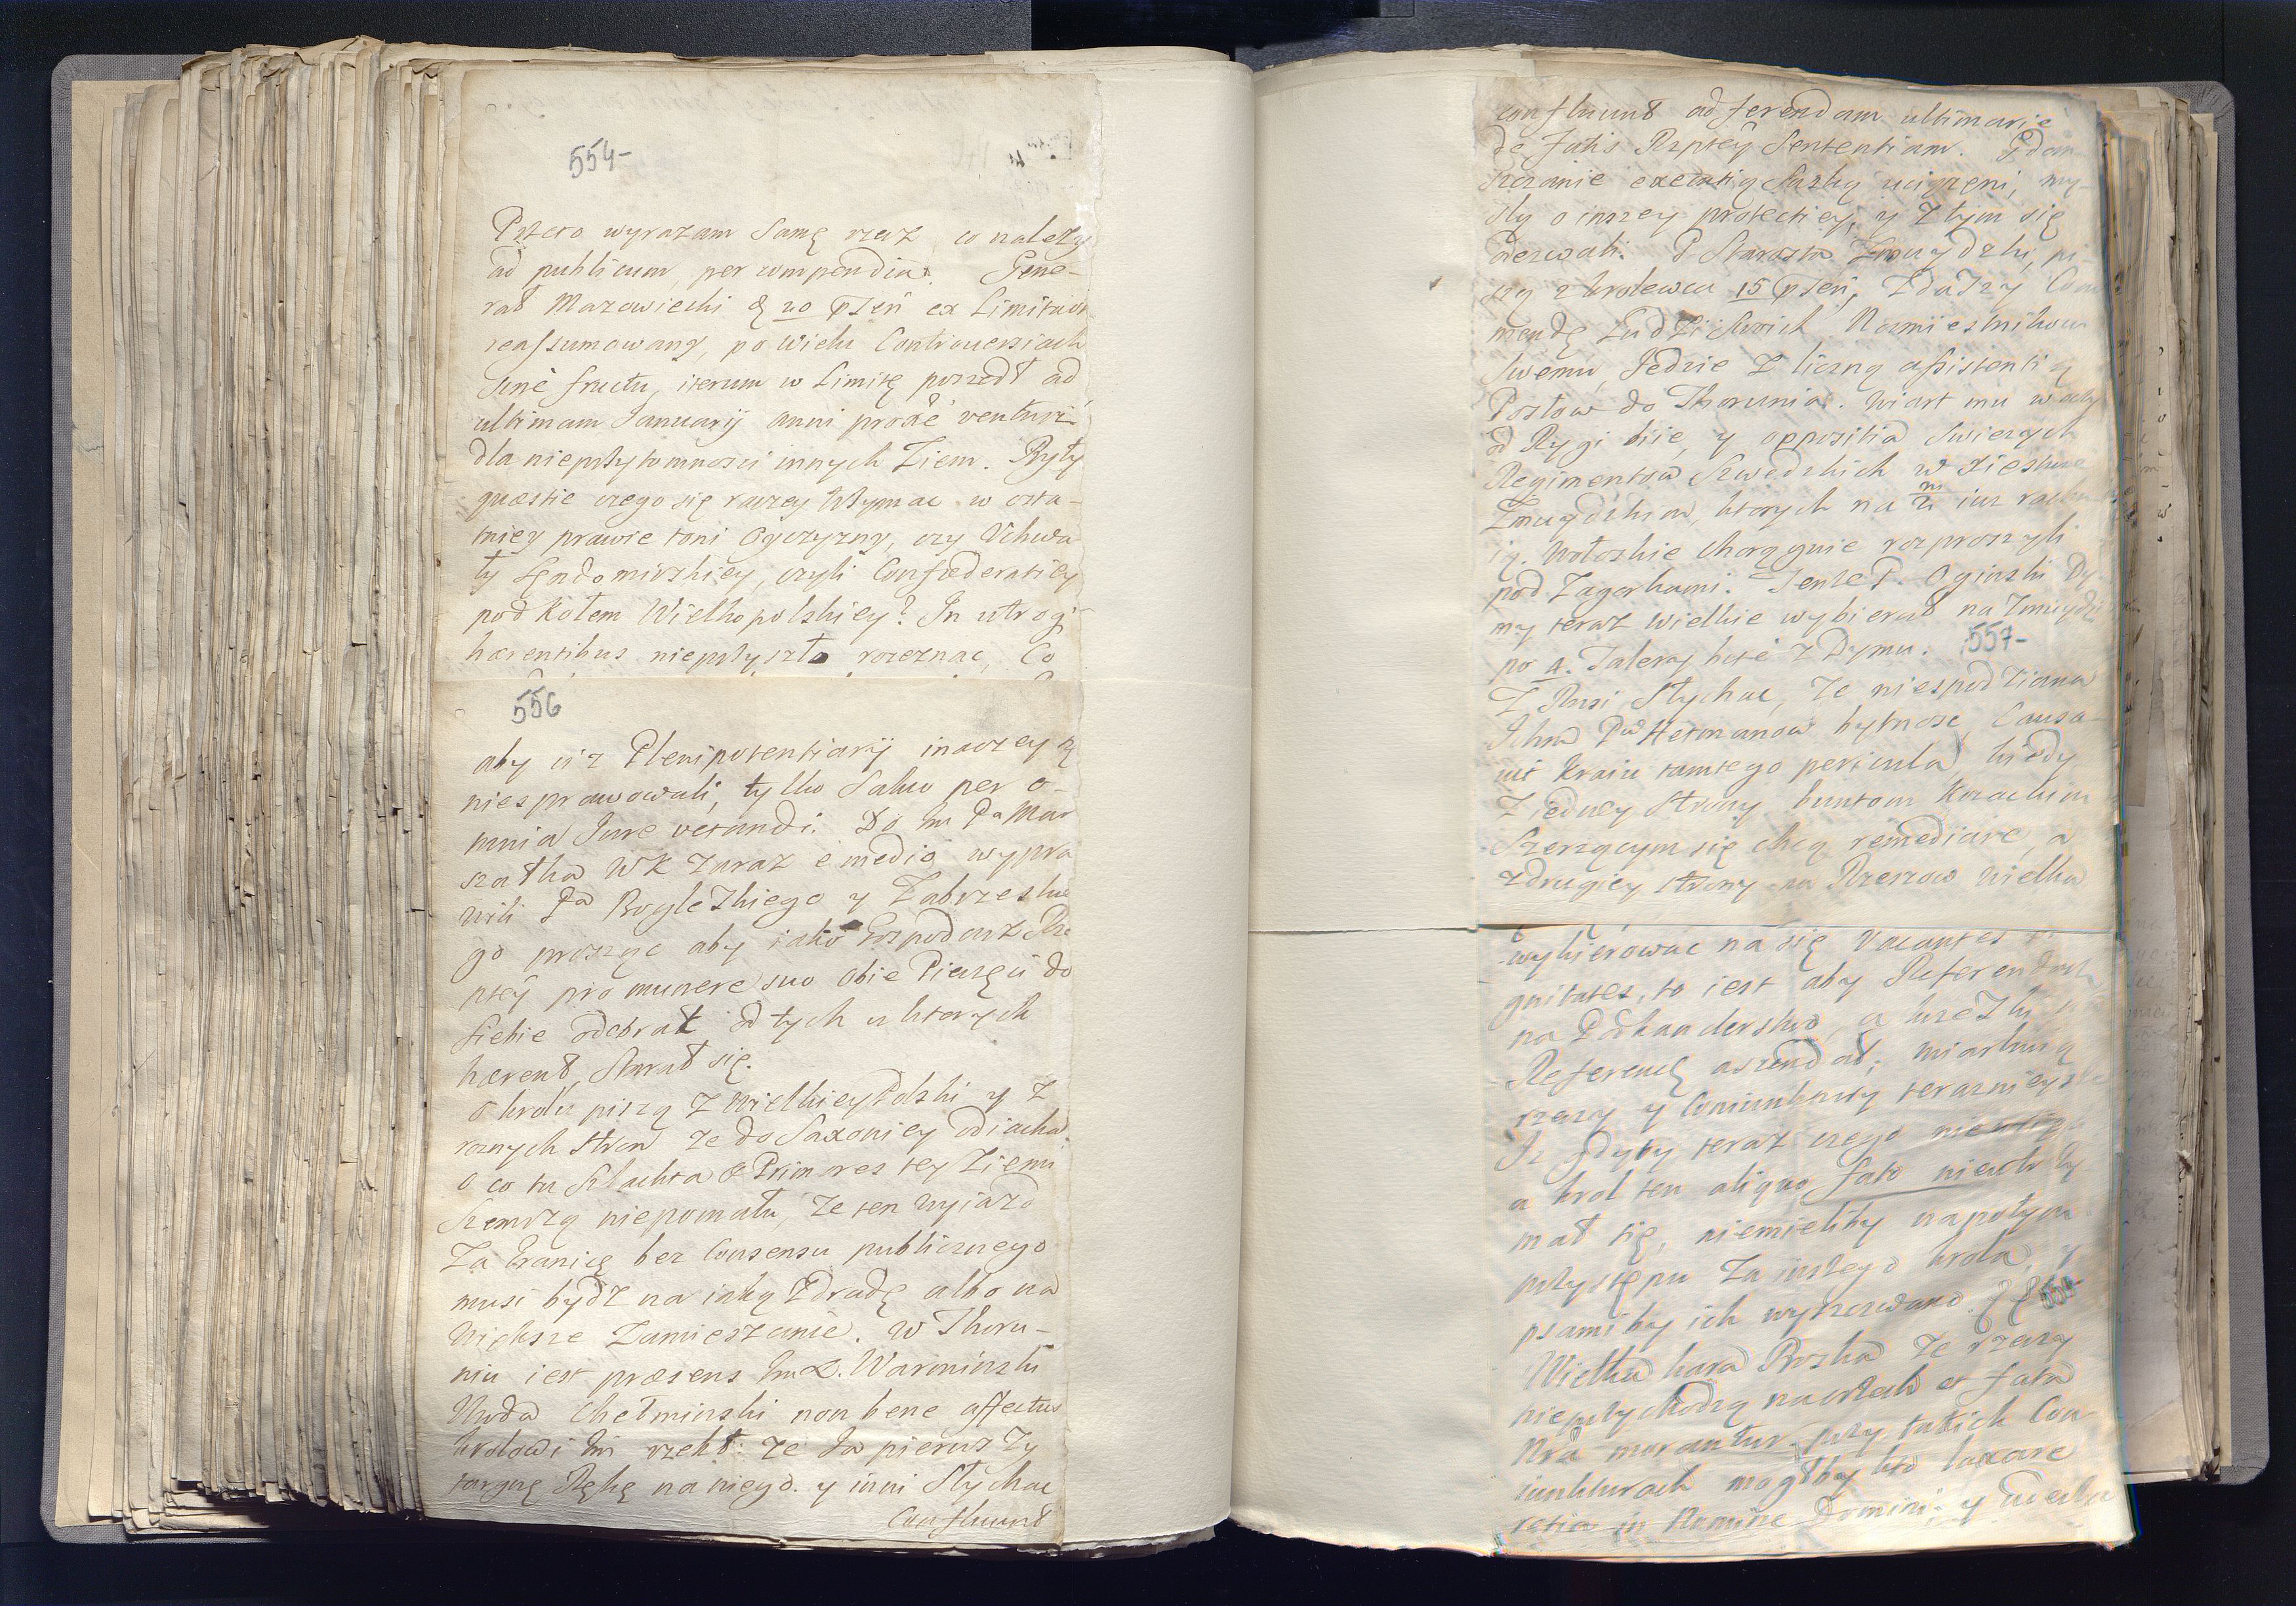 554-
Przeto wyrazam Samę rzecz co nalezy
ad publicum, per compendia. Gene-
rał Mazowiecki d 20 praesen ex Limitaõe
reassumowany, po wielu Controuersiach
sine fructu, iterum w Limitę poszedł ad
ultimam Januarij anni proxe venturi
dla nieprzytomnosci innych Ziem. Były
quæstie czego się raczey trzymac w osta-
tniey prawie toni Oyczyzny, czy Vchwa
ły Sędomirskiey, czyli Confœderatiey
pod Kołem Wielkopolskiey? In utroq
hærentibus nieprzyszło rozeznac, Co
556
aby ciz Plenipotentiarij inaczey
niesprawowali, tylko Saluo per o-
mnia Jure vetandi. Do Im Pa Mar
szałka WK zaraz e medio wypra
wili Pa Rogleskiego y Zabrzeskie
go prosząc aby iako Gospodarz Rze
ptey pro munere suo obie Pieczęci do
siebie odebrał od tych u ktorych
hærent, Starał się.
O krolu piszą z Wielkiey Polski y z
roznych stron ze do Saxoniey odiachał.
o co tu Slachta & Primores tey Ziemi
Szemrzą niepomału, ze ten wyiazd
Za Granicę bez Consensu publicznego
musi bydz na iaką Zdradę albo na
Większe Zamieszanie. W Thoru-
niu iest præsens Im X. Warminski
Woda Chełminski non bene affectus
krolowi Im rzekł: ze Ja pierwszy
targnę Rękę na niego. y inni Słychac
Confluunt
confluunt ad ferendam ultimarie
de fatis Rzptey Sententiam. Gdan
szczanie execatią Saską uciązeni, my-
slą o inszey protectiey, y z tym się
odezwali. P Starosta Zmuydzki, pi-
szą z krolewca 15 praesen, Zdaszy Com
mendę Ludzi Swoich Namiestnikowi
Swemu, Jedzie z liczną assistentią
Posłow do Thorunia. Wiatr mu w oczy
od Rygi biie, y oppositia Swiezych
Regimentow Szwedzkich w xiestwie
Zmuydzkim, ktorych na 2 m iuz rachu
ią. Wołoskie chorągwie rozproszyli
pod Zagorkami. Tenze P. Oginski Dy-
my teraz wielkie wybierał na Zmuydzi
po 4. Talery bite z Dymu. 557-
Z Rusi Słychac, ze niespodziana
Ichm Pw Hetmanow bytnosc, Causa-
uit kraiu tamtego pericula, kiedy
z iedney strony buntom Kozackim
Szerzącym się chcą remediare, a
z drugiey strony na Rzeszow wielka
wykierowac na się vacantes
gnitates, to iest aby Referendarz
na Podkanclerstwo, a
Referend ascendał; miarkuią
rzeczy y Coniunktury teraznieysze
Iz gdyby teraz czego niewzię-
a krol ten aliquo fato nieutrzy
mał się, niemieliby napotym
przystępu za inszego krola, y
psami by ich wyszczwano.
Wielka kara Boska ze rzeczy
nieprzychodzą na orzech et fata
Nra morantur. przy takich Con-
iunkturach mogłby kto taxare
in Nomine Domini y